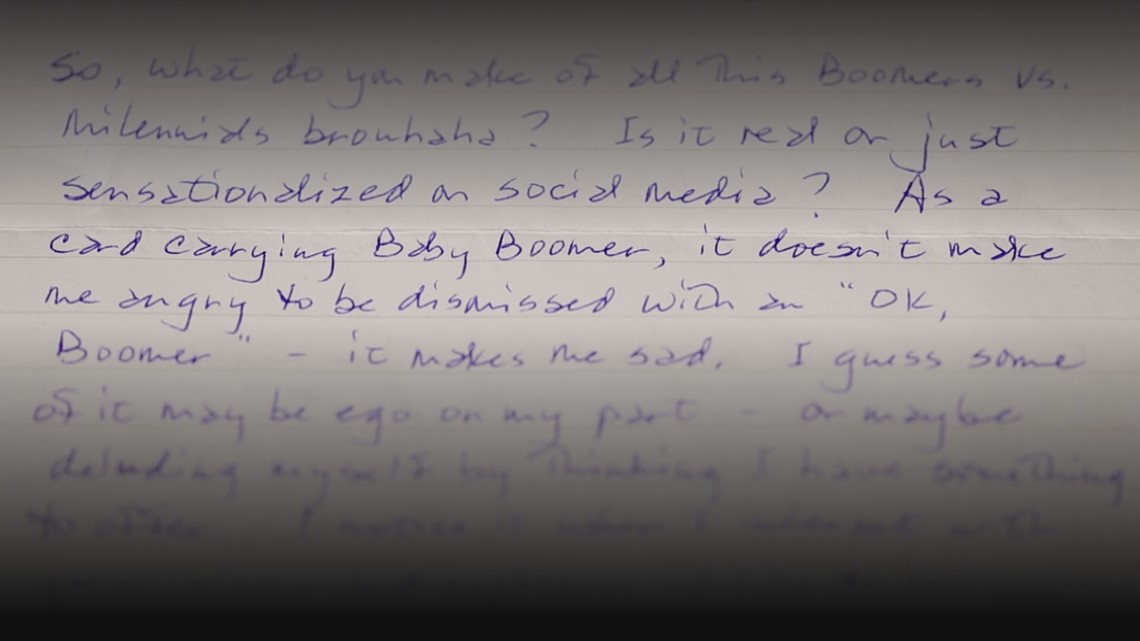 So, what do you make of all this Boomers vs.
Milennials brouhaha? Is it real or just
sensationalized on social media? As a
card carrying Baby Boomer, it doesn't make
me angry to be dismissed with an "OK,
Boomer" - it makes me sad. I guess some
of it may be ego on my part - or maybe
deluding myself by thinking I have something
to offer. I notice it when I interact with